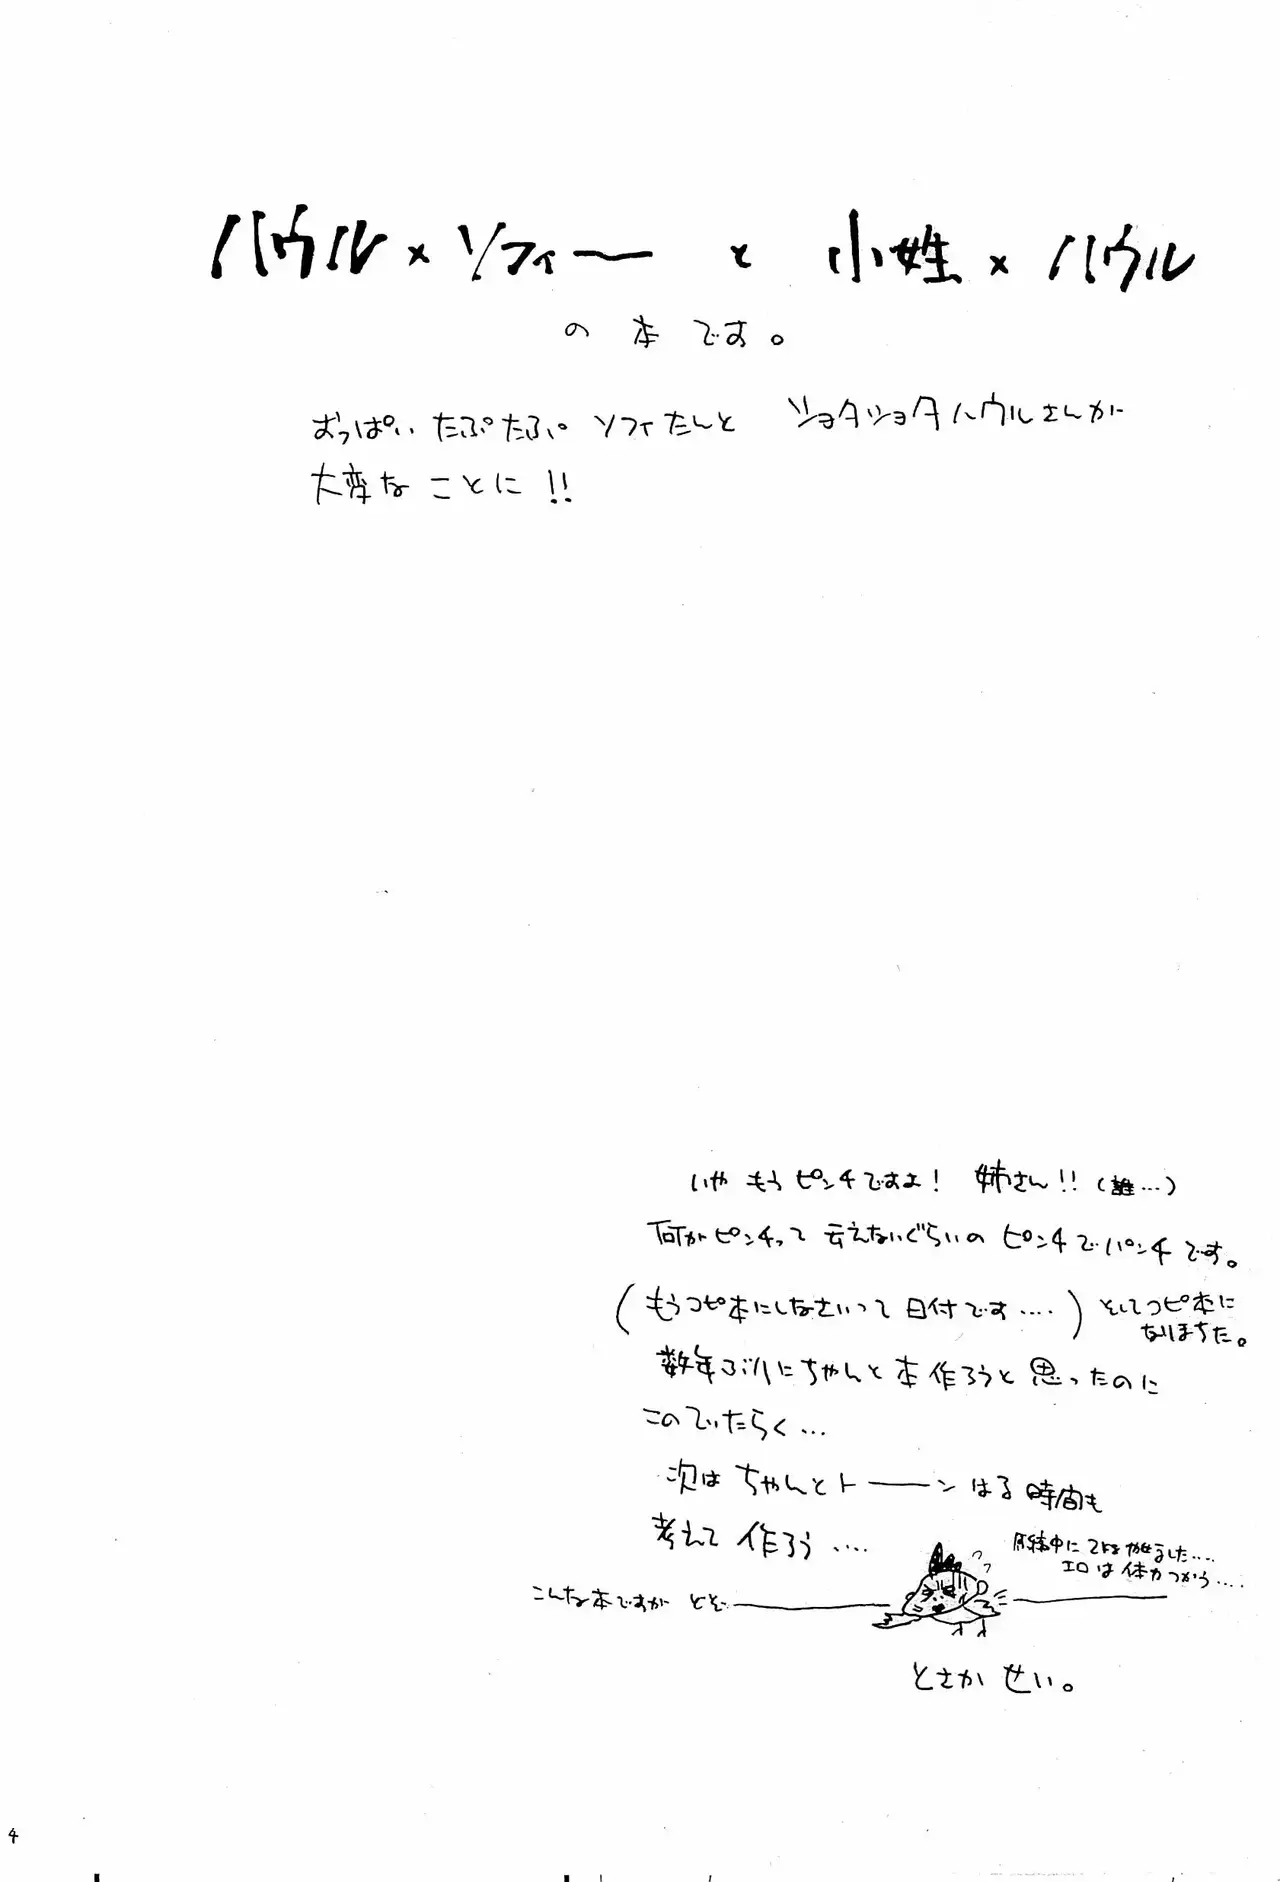 ハウル×ソフィーと小姓×ハウル
の本です。
おっぱいたぷたぷソフィたんとショタショタハウルさんが
大変なことに!!
いやもうピンチですよ! 姉さん!!(誰…)
何がピンチって云えないぐらいのピンチでパンチです。
(もうコピ本にしなさいって日付です‥‥)そしてコピ本に
なりまちた。
数年ぶりにちゃんと本作ろうと思ったのに
このていたらく…
次はちゃんとトーーン はる時間も
考えて作ろう‥‥
エロは体力つかう‥‥
こんな本ですが どぞ
とさか せい。
4